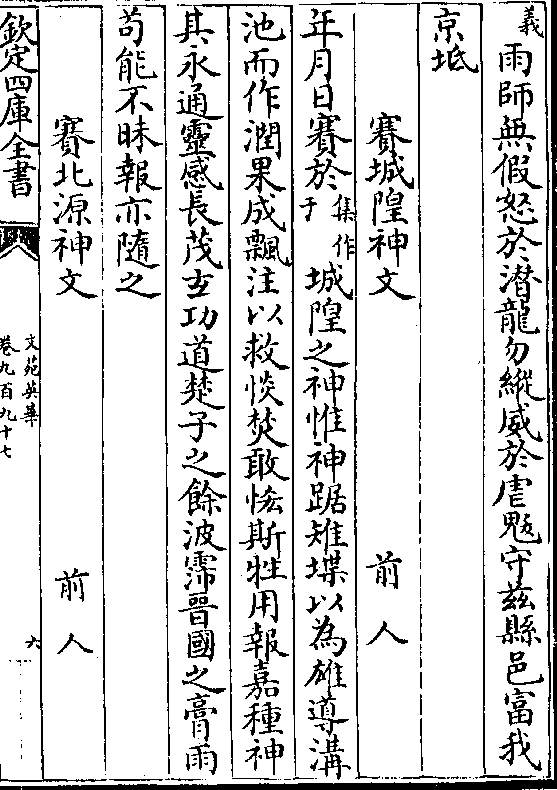 義
雨師無假怒於潜龍勿縱威於虐魃守兹縣邑富我
京坻
賽城隍神文 前人
年月日賽於集作于城隍之神惟神踞雉堞以為雄導溝
池而作潤果成飄注以救惔焚敢恡斯牲用報嘉種神
其永通靈感長茂玄功道楚子之餘波霈晉國之膏雨
苟能不昧報亦隨之
賽北源神文 前人
欽定四庫全書
文苑英華
卷九百九十七
六